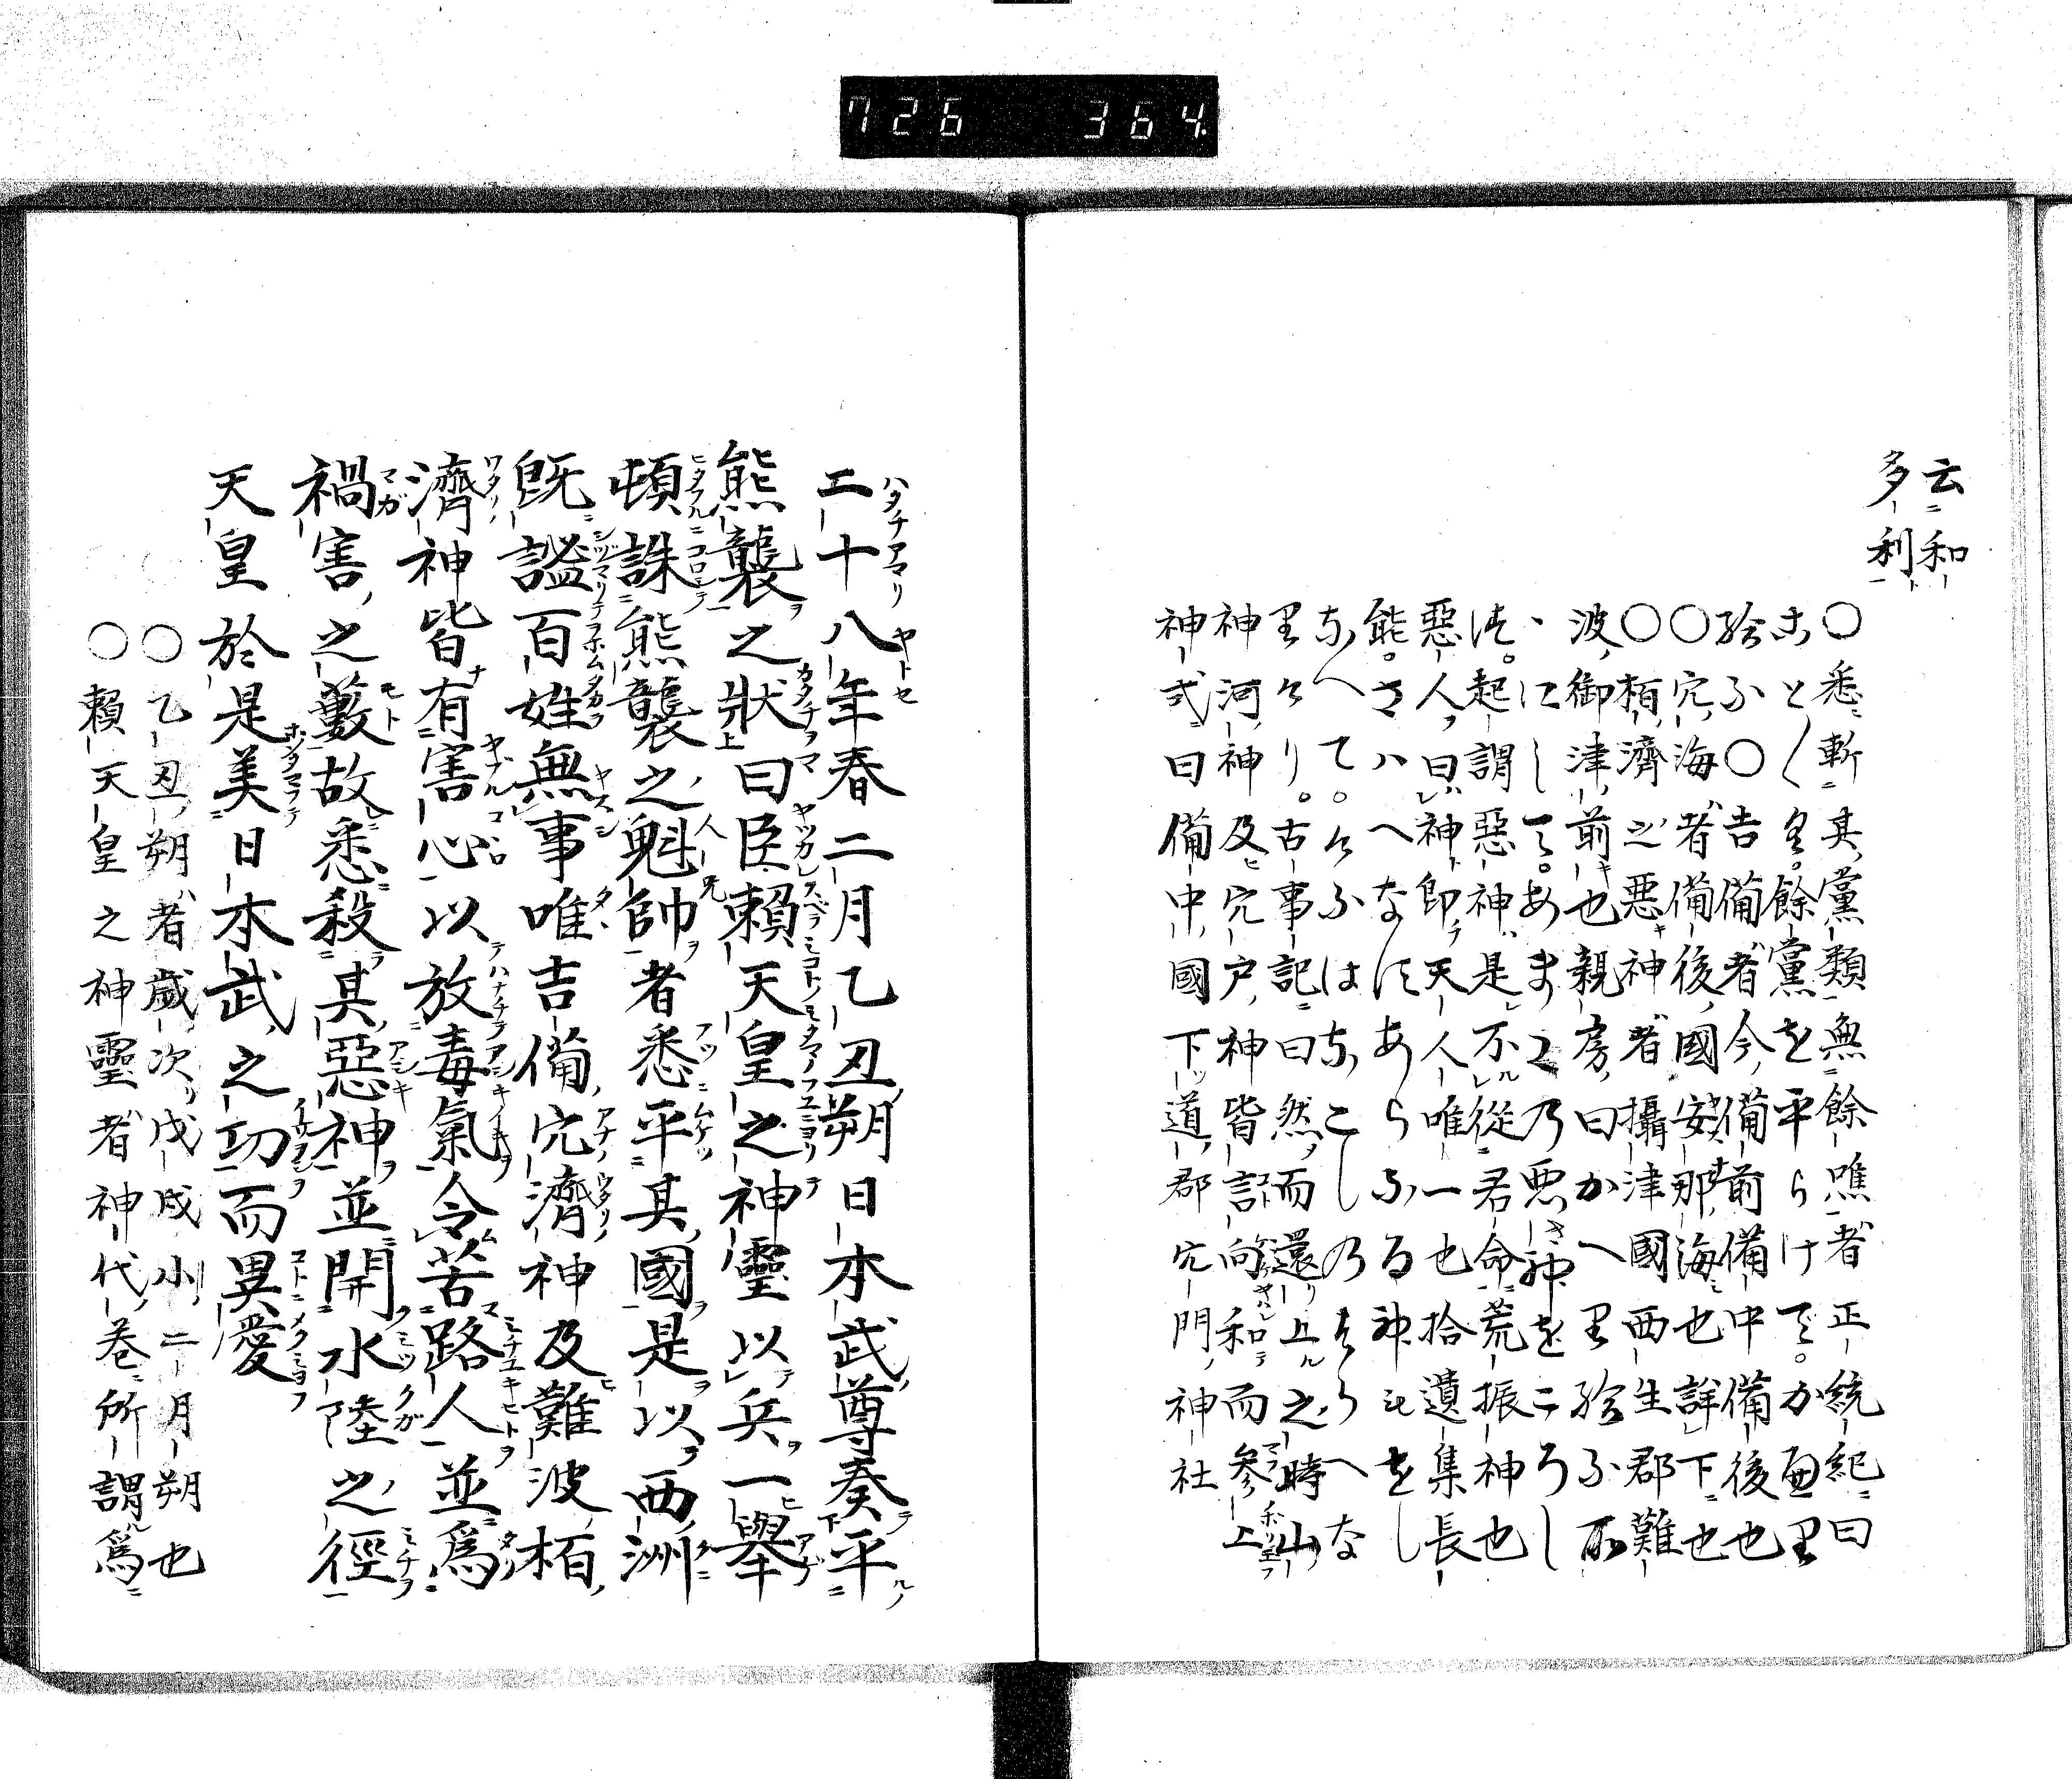 726 364
云和
多利
〇悉斬其黨類無餘噍者正統紀曰
ことくく。餘黨を平らけて。かへり
給ふ〇吉備者今備前備中備後也
〇穴海者備後國安那海也詳下也
〇栢濟之悪神者攝津國西生郡難
波御津前也親房曰かへり給ふ所
〻にして。あまたの悪き神をころし
起謂惡神是不從君命荒振神也
惡人曰神即天人唯一也拾遺集長
能。さハへなすあらふる神もをし
なへて。けふはなこしのはらへな
りけり。古事記曰然而還上之時山
神河神及穴戸神皆言向和而參上
神式曰備中國下道郡穴門神社
二十八年春二月乙丑朔日本武尊奏平
熊襲之狀曰臣賴天皇之神靈以兵一擧
頓誅熊襲之魁帥者悉平其國是以西洲
既謐百姓無事唯吉備穴濟神及難波栢
濟神皆有害心以放毒氣令苦路人並爲
禍害之藪故悉殺其惡神並開水陸之徑
天皇於是美日本武之功而異愛
〇乙丑朔者歲次戊戌小二月朔也
〇賴天皇之神靈者神代巻所謂爲